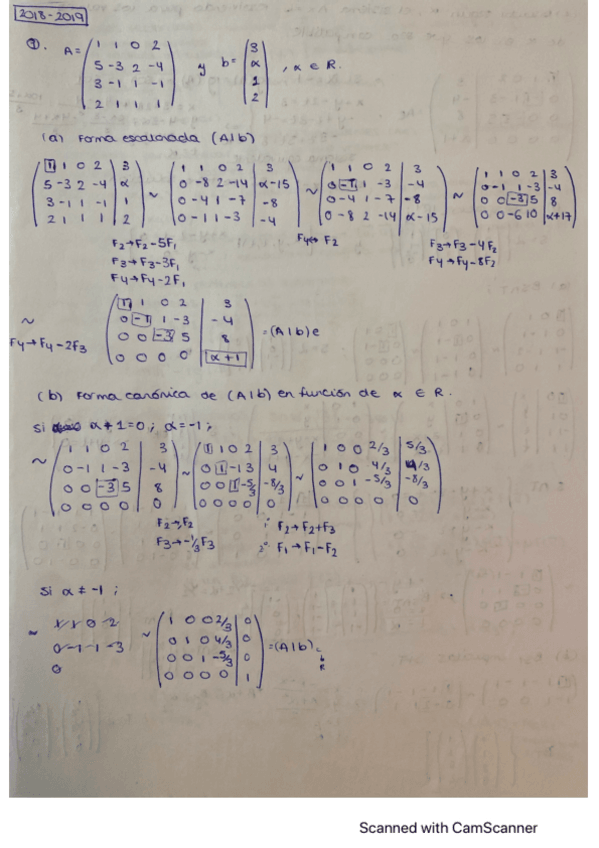 2018-2019
①. A= ( 1 1 0 2 / 5 -3 2 -4 / 3 -1 1 -1 / 2 1 1 1 ) y b= ( 3 / α / 1 / 2 ) , α ∈ R.
(a) Forma escalonada (A|b)
( 1 1 0 2 | 3 / 5 -3 2 -4 | α / 3 -1 1 -1 | 1 / 2 1 1 1 | 2 ) ~ ( 1 1 0 2 | 3 / 0 -8 2 -14 | α-15 / 0 -4 1 -7 | -8 / 0 -1 1 -3 | -4 ) ~ ( 1 1 0 2 | 3 / 0 -1 1 -3 | -4 / 0 -4 1 -7 | -8 / 0 -8 2 -14 | α-15 ) ~ ( 1 1 0 2 | 3 / 0 -1 1 -3 | -4 / 0 0 -3 5 | 8 / 0 0 -6 10 | α+17 )
F2→F2-5F1 F4↔F2 F3→F3-4F2
F3→F3-3F1 F4→F4-8F2
F4→F4-2F1
~ F4→F4-2F3 ( 1 1 0 2 | 3 / 0 -1 1 -3 | -4 / 0 0 -3 5 | 8 / 0 0 0 0 | α+1 ) =(A|b)e
(b) Forma canónica de (A|b) en función de α ∈ R.
Si α+1=0 ; α=-1 ;
~ ( 1 1 0 2 | 3 / 0 -1 1 -3 | -4 / 0 0 -3 5 | 8 / 0 0 0 0 | 0 ) ~ ( 1 1 0 2 | 3 / 0 1 -1 3 | 4 / 0 0 1 -5/3 | -8/3 / 0 0 0 0 | 0 ) ~ ( 1 0 0 2/3 | 5/3 / 0 1 0 4/3 | 4/3 / 0 0 1 -5/3 | -8/3 / 0 0 0 0 | 0 )
F2→F2 1º F2→F2+F3
F3→-1/3F3 2º F1→F1-F2
Si α ≠ -1 ;
~ 1 1 0 2 / 0 -1 1 -3 / 0 ~ ( 1 0 0 2/3 | 0 / 0 1 0 4/3 | 0 / 0 0 1 -5/3 | 0 / 0 0 0 0 | 1 ) =(A|b)
Scanned with CamScanner